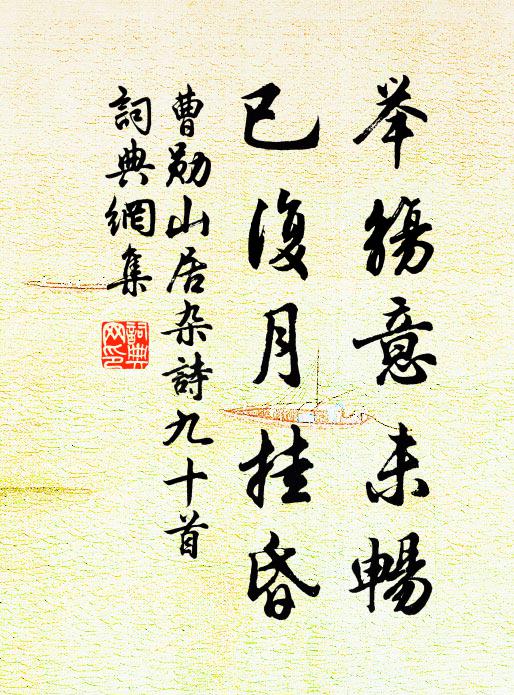 举觞意未畅
已復月挂昏
曹勛山居杂詩九十首
詞典網集
詞典
网印